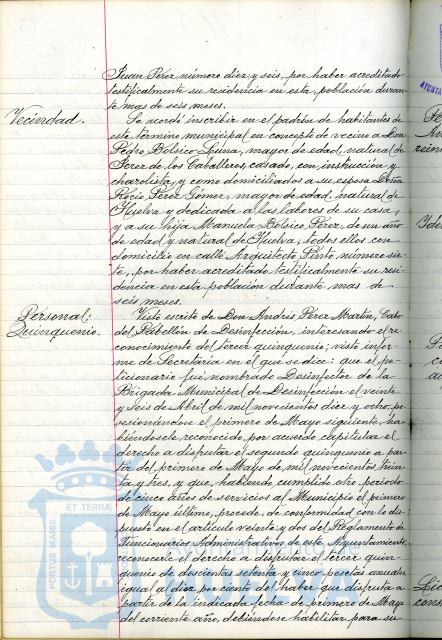 Juan Pérez número diez y seis, por haber acreditado
testificalmente su residencia en esta población duran-
te mas de seis meses.
Vecindad.
Se acordó inscribir en el padrón de habitantes de
este término municipal en concepto de vecino a Don
Pedro Bolsico Luna, mayor de edad, natural de
Jerez de los Caballeros, casado, con instrucción y
charolista, y como domiciliados a su esposa Doña
Rocío Pérez Gómez, mayor de edad, natural de
Huelva y dedicada a las labores de su casa,
y a su hija Manuela Bolsico Pérez, de un año
de edad y natural de Huelva, todos ellos con
domicilio en calle Arquitecto Pinto número sie-
te, por haber acreditado testificalmente su resi-
dencia en esta población durante mas de
seis meses.
Personal:
Quinquenio.
Visto escrito de Don Andrés Pérez Martín, Cabo
del Pabellón de Desinfección, interesando el re-
conocimiento del tercer quinquenio; visto infor-
me de Secretaria en el que se dice: que el pe-
ticionario fué nombrado Desinfector de la
Brigada Municipal de Desinfección el veinte
y seis de Abril de mil novecientos diez y ocho, po-
sesionándose el primero de Mayo siguiente, ha-
biéndosele reconocido, por acuerdo capitular el
derecho a disfrutar el segundo quinquenio a par-
tir del primero de Mayo de mil novecientos trein-
ta y tres, y que, habiendo cumplido otro periodo
de cinco años de servicios al Municipio el primero
de Mayo último, procede, de conformidad con lo dis-
puesto en el artículo veinte y dos del Reglamento de
Funcionarios Administrativos de este Ayuntamiento,
reconocerle el derecho a disfrutar el tercer quin-
quenio de doscientas setenta y cinco pesetas anuales
igual al diez por ciento del haber que disfruta a
partir de la indicada fecha de primero de Mayo
del corriente año, debiéndose habilitar para su
PORTUS MARIS
ET TERRAE